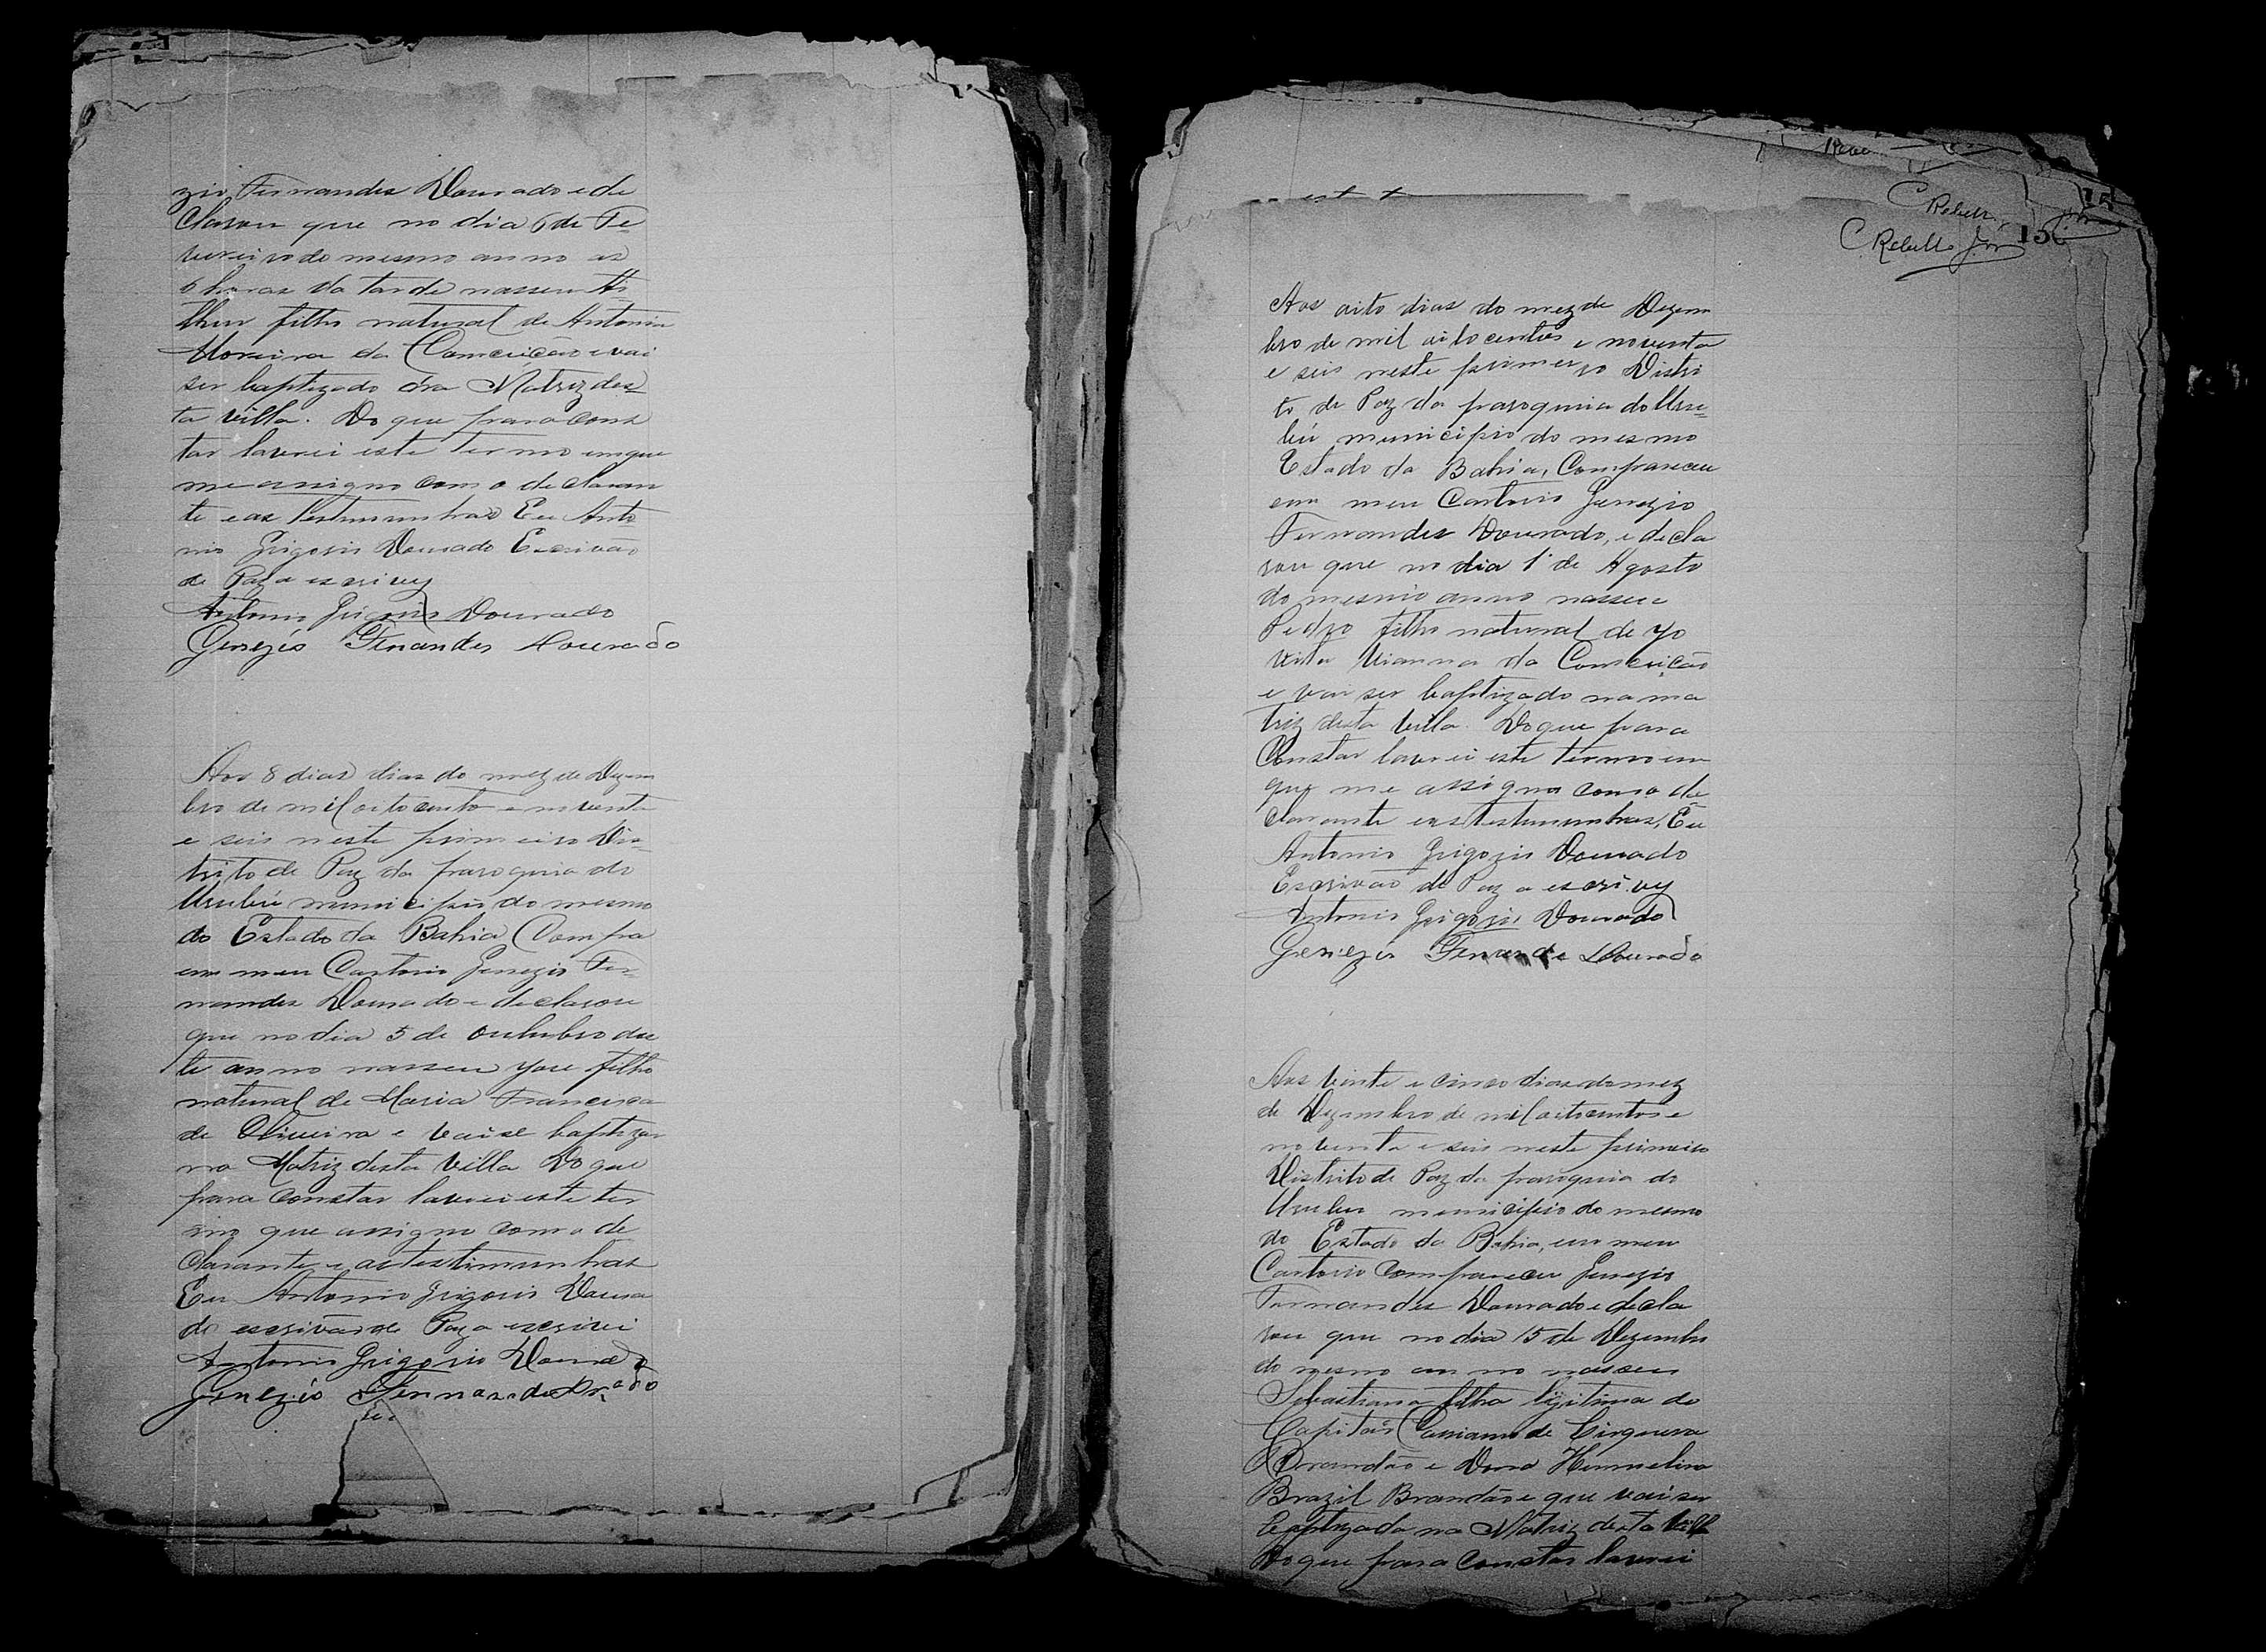 zio Fernandes Dourado e de
clarou que no dia 6 de Fe
vereiro do mesmo anno as
6 horas da tarde nasseu
filho natural de Antonia
Moreira da Conceição e vai
ser baptizado na Matriz des
ta villa. Do que para cons
tar lavrei este termo em que
me assigno com o declaran
te e as testemunhas Eu Anto
nio Grigorio Dourado Escrivão
de Paz a escrivy
Antonio Grigorio Dourado
Genezio Fernandes Dourado
Aos 8 dias dias do mez de Dezem
bro de mil oitocentos e noventa
e seis neste primeiro Dis
trito de Paz da paroquia do
Urubú municipio do mesmo
do Estado da Bahia Compa
em meu Cartorio Genezio Fer
nandes Dourado e declarou
que no dia 5 de outubro des
te anno nasseu Jose filho
natural de Maria Francisca
de Oliveira e vai se baptizar
na Matriz desta Villa Do que
para constar lavrei este ter
mo que assigno com o de
clarante e as testimunhas
Eu Antonio Grigorio Doura
do escrivão de Paz a escrivi
Antonio Grigorio Dourado
Genezio Fernandes
C Rebello
C. Rebello Jor 15
Aos oito dias do mez de Dezem
bro de mil oitocentos e noventa
e seis neste primeiro Distri
to de Paz da paroquia do Uru
bú municipio do mesmo
Estado da Bahia, Compareceu
em meu Cartorio Genezio
Fernandes Dourado, e decla
rou que no dia 1º de Agosto
do mesmo anno nasseu
Pedro filho natural de Jo
vita Vianna da Conceição
e vai ser baptizado na ma
triz desta villa. Do que para
Constar lavrei este termo em
que me assigno com o de
clarante e as testemunhas, Eu
Antonio Grigorio Dourado
Escrivão de Paz a escrivy
Antonio Grigorio Dourado
Genezio Fernande Dourado
Aos vinte e cinco dias do mez
de Dezembro de mil oitocentos e
noventa e seis neste primeiro
Distrito de Paz da paroquia do
Urubu municipio do mesmo
do Estado da Bahia, em meu
Cartorio Compareceu Genezio
Fernandes Dourado e decla
rou que no dia 15 de Dezembro
do mesmo anno nasceu
Sebastiana filha ligitima do
Capitão Cassiano de Cirqueira
Brandão e Dona Hermelina
Brazil Brandão e que vai ser
baptizada na Matriz desta Villa
Do que para constar lavrei